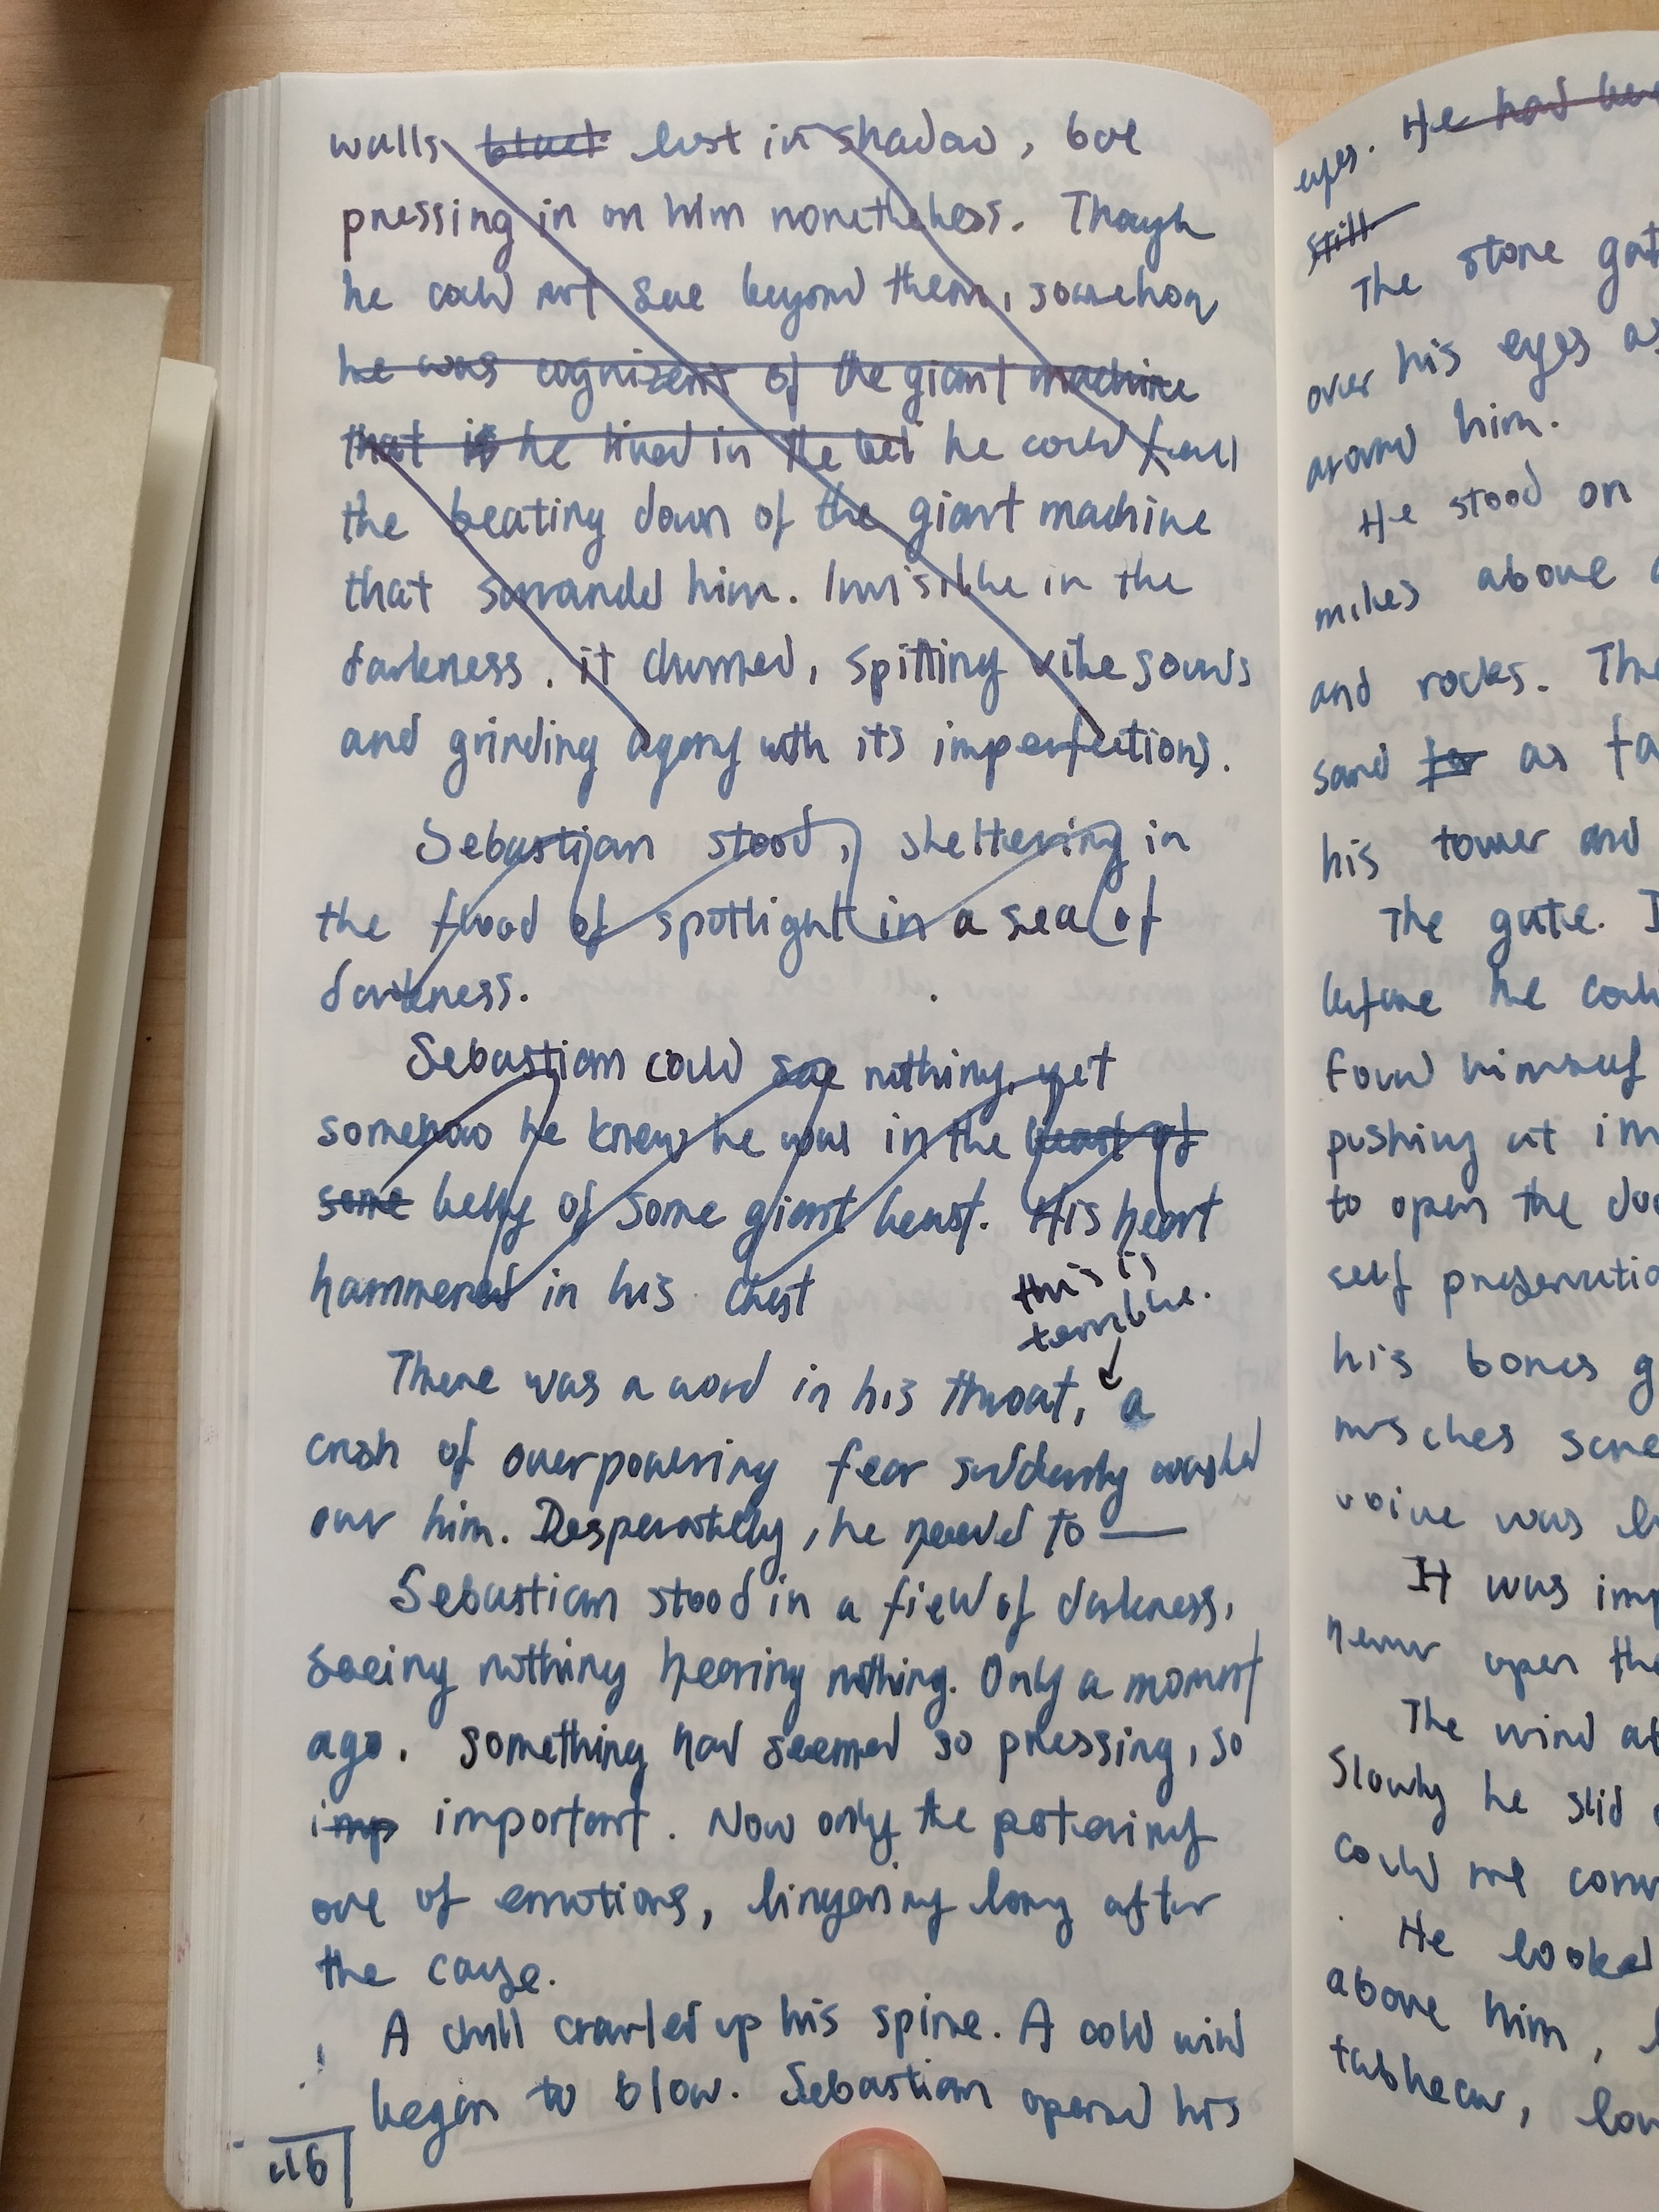 walls black lost in shadow, but
pressing in on him nonetheless. Though
he could not see beyond them, somehow
he was cognizent of the giant machine
that is he lived in the bel he could feel
the beating down of the giant machine
that surrounded him. Invisible in the
darkness, it churned, spitting vile sounds
and grinding agony with its imperfections.
Sebastian stood, sheltering in
the flood of spotlight in a sea of
darkness.
Sebastian could see nothing, yet
somehow he knew he was in the heart of
some belly of some giant beast. His heart
hammered in his chest
this is
terrible.
There was a word in his throat, a
crash of overpowering fear suddenly washed
over him. Desperately, he needed to —
Sebastian stood in a field of darkness,
seeing nothing hearing nothing. Only a moment
ago, something had seemed so pressing, so
imp important. Now only the petering
out of emotions, lingering long after
the cause.
A chill crawled up his spine. A cold wind
began to blow. Sebastian opened his
116
eyes. He had
still
The stone gat
over his eyes as
around him.
He stood on
miles above
and rocks. The
sand as fa
his tower and
The gate. I
before he coul
found himself
pushing at im
to open the doo
self preservatio
his bones g
muscles scre
voice was
It was imp
never open the
The wind at
Slowly he slid
could
He looked
above him,